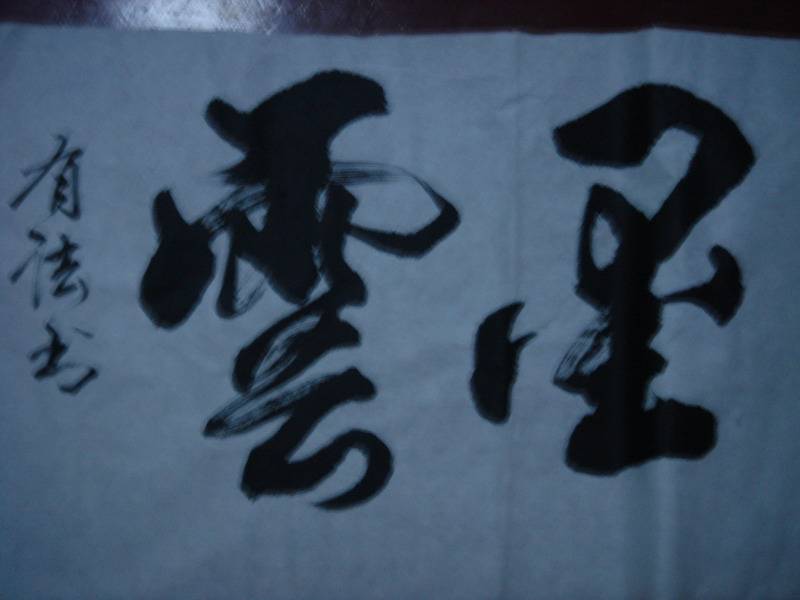 墨雲
有法书